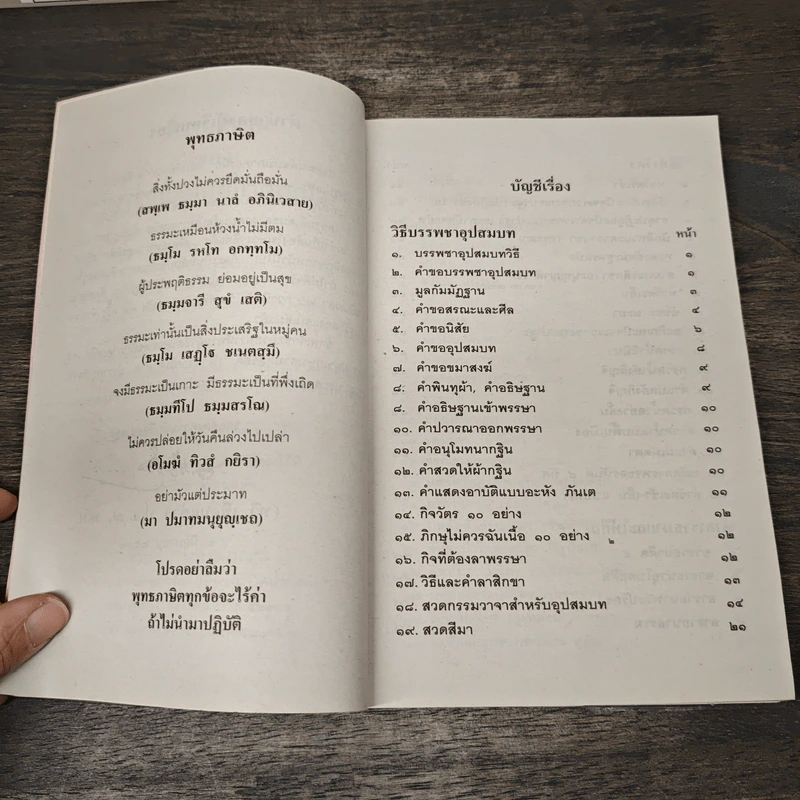 พุทธภาษิต
สิ่งทั้งปวงไม่ควรยึดมั่นถือมั่น
(สพฺเพ ธมฺมา นาลํ อภินิเวสาย)
ธรรมะเหมือนห้วงน้ำไม่มีตม
(ธมฺโม รหโท อกทฺทโม)
ผู้ประพฤติธรรม ย่อมอยู่เป็นสุข
(ธมฺมจารี สุขํ เสติ)
ธรรมะเท่านั้นเป็นสิ่งประเสริฐในหมู่คน
(ธมฺโม เสฏฺโฐ ชเนตสฺมึ)
จงมีธรรมะเป็นเกาะ มีธรรมะเป็นที่พึ่งเถิด
(ธมฺมทีโป ธมฺมสรโณ)
ไม่ควรปล่อยให้วันคืนล่วงไปเปล่า
(อโมฆํ ทิวสํ กยิรา)
อย่ามัวแต่ประมาท
(มา ปมาทมนุยุญฺเชถ)
โปรดอย่าลืมว่า
พุทธภาษิตทุกข้อจะไร้ค่า
ถ้าไม่นำมาปฏิบัติ
บัญชีเรื่อง
วิธีบรรพชาอุปสมบท หน้า
๑. บรรพชาอุปสมบทวิธี ๑
๒. คำขอบรรพชาอุปสมบท ๑
๓. มูลกัมมัฏฐาน ๓
๔. คำขอสรณะและศีล ๔
๕. คำขอนิสัย ๖
๖. คำขออุปสมบท ๘
๗. คำขอขมาสงฆ์ ๙
๘. คำพินทุผ้า, คำอธิษฐาน ๙
๘. คำอธิษฐานเข้าพรรษา ๑๐
๑๐. คำปวารณาออกพรรษา ๑๐
๑๑. คำอนุโมทนากฐิน ๑๐
๑๒. คำสวดให้ผ้ากฐิน ๑๐
๑๓. คำแสดงอาบัติแบบอะหัง ภันเต ๑๑
๑๔. กิจวัตร ๑๐ อย่าง ๑๒
๑๕. ภิกษุไม่ควรฉันเนื้อ ๑๐ อย่าง ๑๒
๑๖. กิจที่ต้องลาพรรษา ๑๒
๑๗. วิธีและคำลาสิกขา ๑๓
๑๘. สวดกรรมวาจาสำหรับอุปสมบท ๑๔
๑๙. สวดสีมา ๒๑